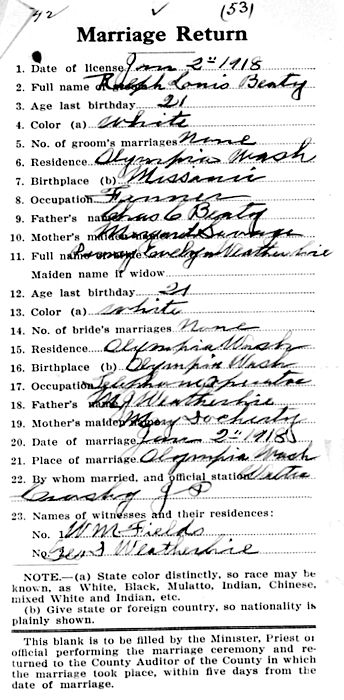 42 (53)
Marriage Return
1. Date of license Jan 2d 1918
2. Full name of groom Ralph Louis Beaty
3. Age last birthday 21
4. Color (a) White
5. No. of groom's marriages None
6. Residence Olympia Wash
7. Birthplace (b) Missouri
8. Occupation
9. Father's name Chas C Beaty
10. Mother's maiden name Margaret Savage
11. Full name Evelyn Weatherbie
Maiden name if widow
12. Age last birthday 21
13. Color (a) White
14. No. of bride's marriages None
15. Residence Olympia Wash
16. Birthplace (b) Olympia Wash
17. Occupation Telephone Operator
18. Father's name M J Weatherbie
19. Mother's maiden name Mary Docherty
20. Date of marriage Jan 2d 1918
21. Place of marriage Olympia Wash
22. By whom married, and official station Walter
Crosby J P
23. Names of witnesses and their residences:
No. 1 W M Fields
No. Geo J Weatherbie
NOTE.—(a) State color distinctly, so race may be
known, as White, Black, Mulatto, Indian, Chinese,
mixed White and Indian, etc.
(b) Give state or foreign country, so nationality is
plainly shown.
This blank is to be filled by the Minister, Priest or
official performing the marriage ceremony and re-
turned to the County Auditor of the County in which
the marriage took place, within five days from the
date of marriage.